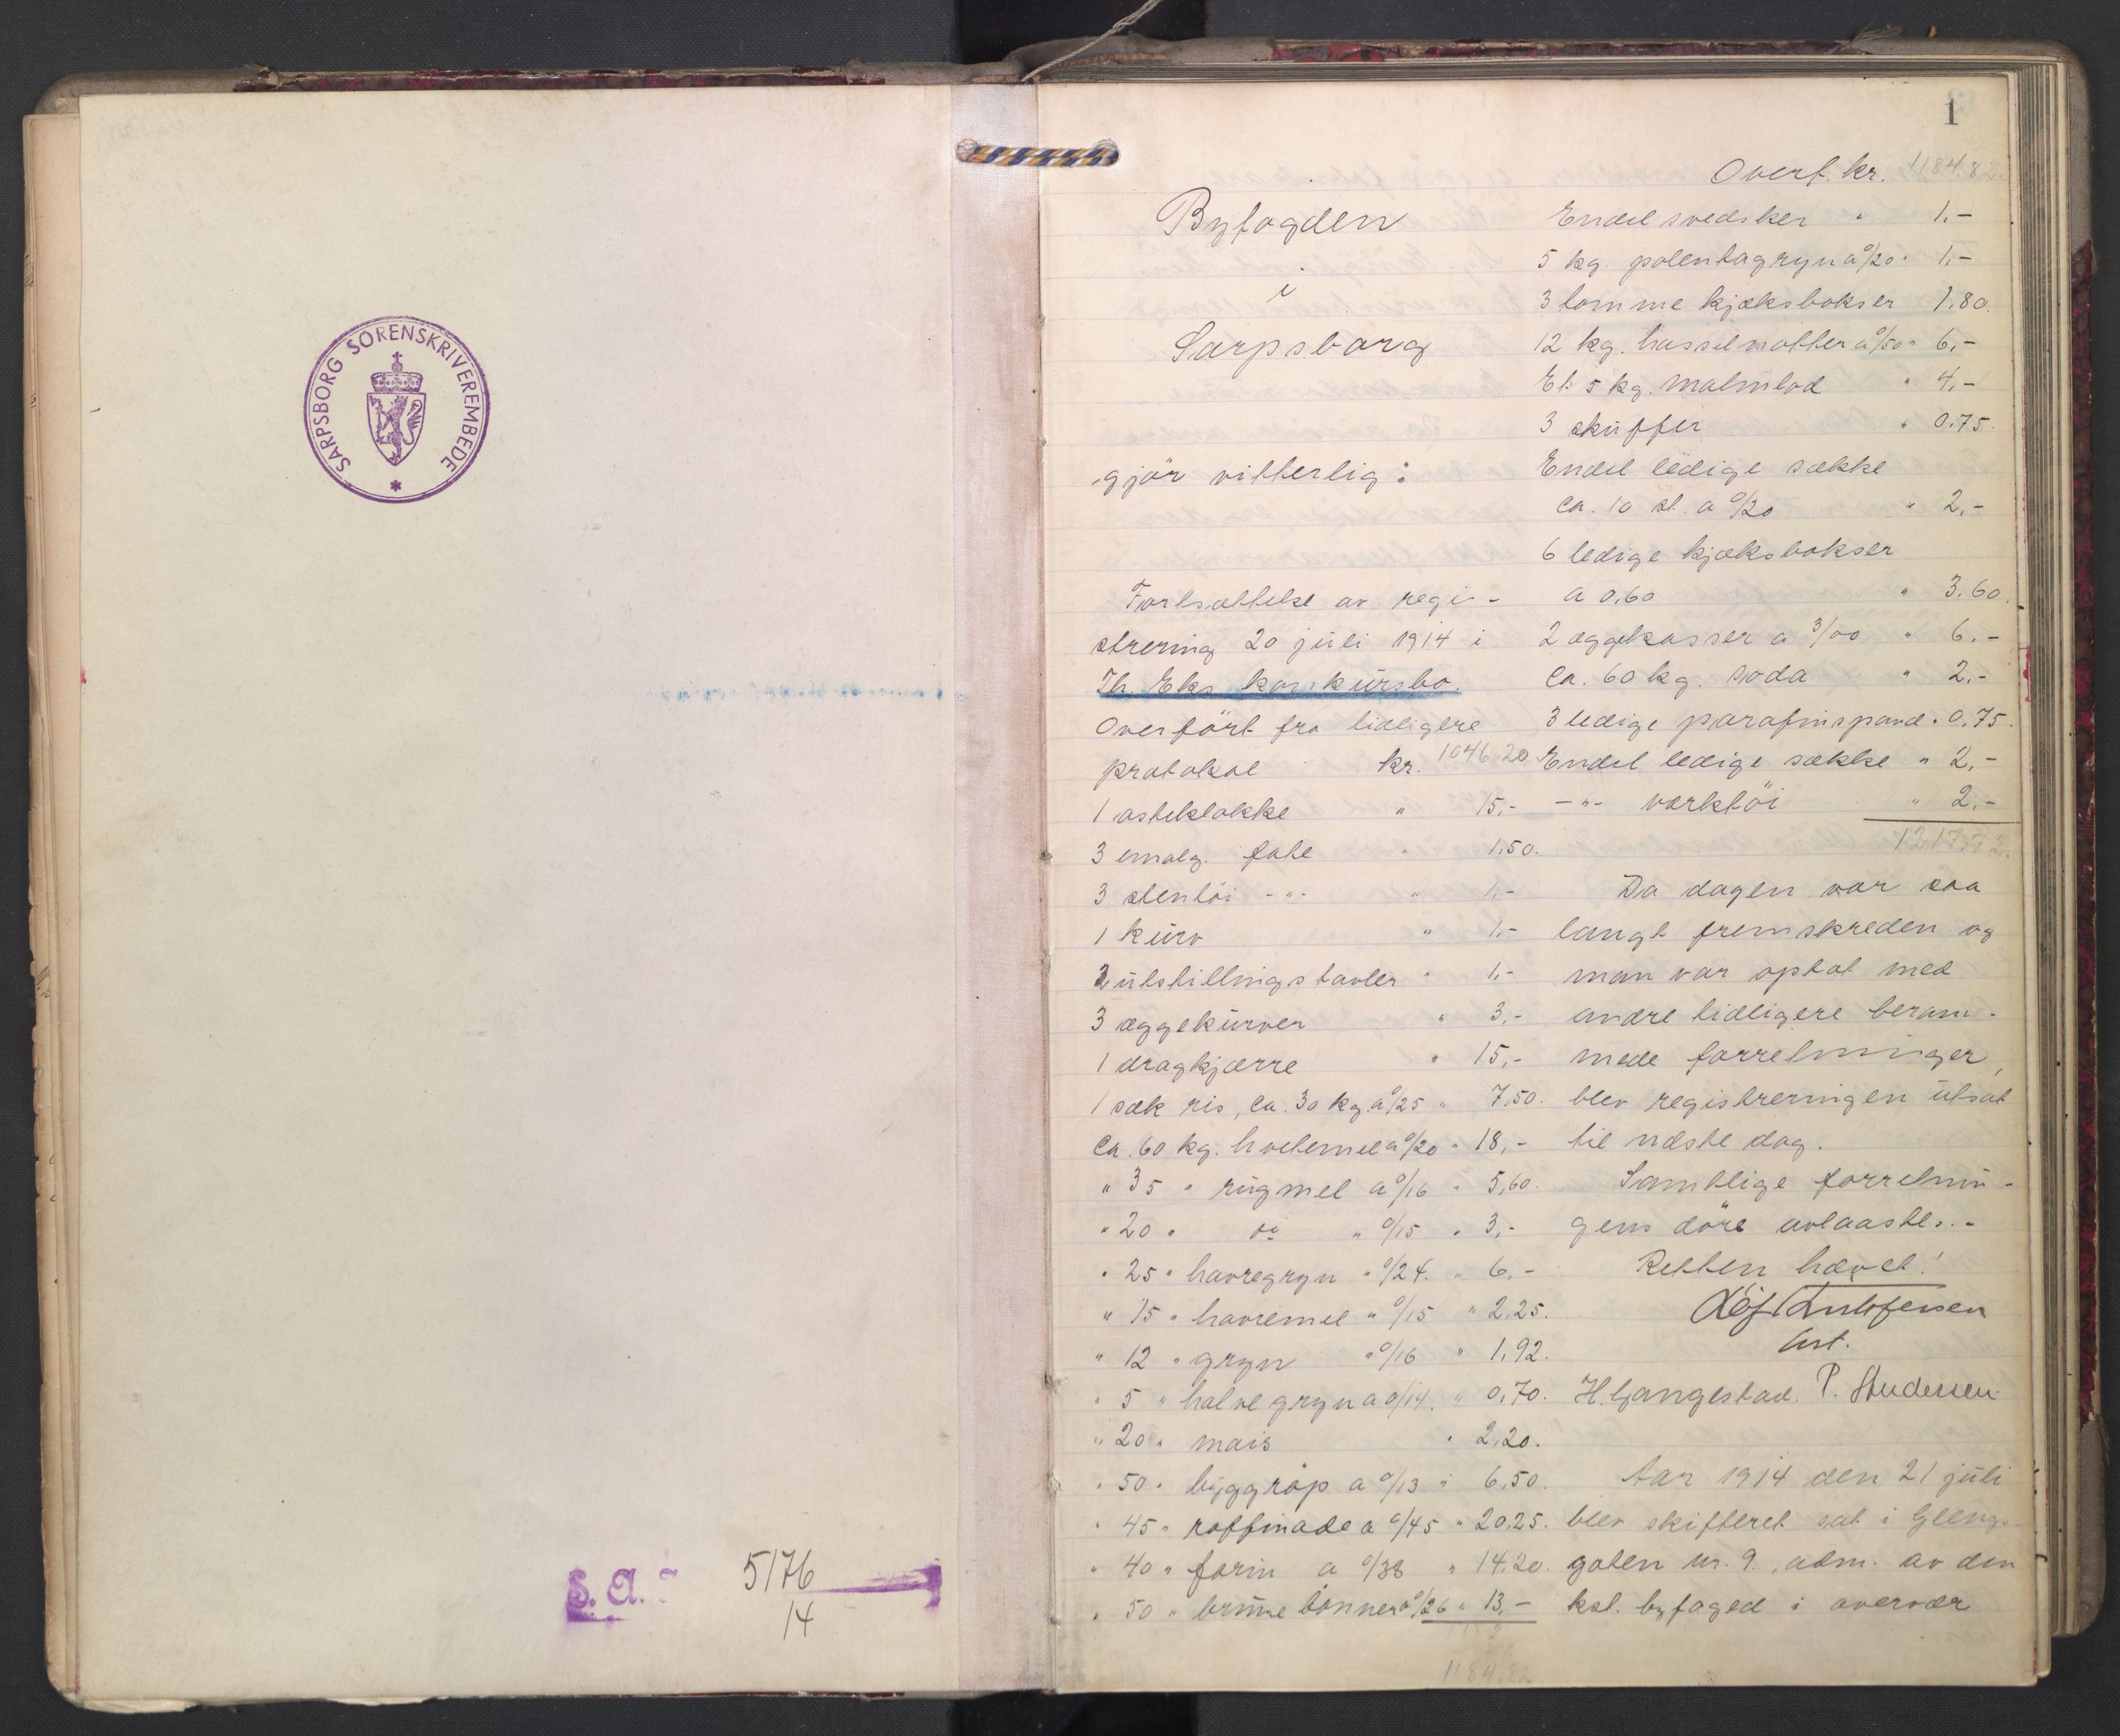 SARPSBORG SORENSKRIVEREMBEDE
S. A.
5176
14
1
Byfogden
i
Sarpsborg
gjör vitterlig:
Fortsættelse av regi-
strering 20 juli 1914 i
Th. Eks konkursbo.
Overfört fra tidligere
protokol kr. 1046.20
1 osteklokke " 15,-
3 emalg. fate " 1,50.
3 stentöi -"- " 1,-
1 kurv " 1,-
2 utstillingstavler " 1,-
3 æggekurver " 3,-
1 dragkjærre " 15,-
1 sæk ris, ca. 30 kg. a 0/25 " 7,50.
ca. 60 kg. hvetemel a 0/20 " 18,-
" 35 " rugmel a 0/16 " 5,60.
" 20 " do " 0/15 " 3,-
" 25 " havregryn " 0/24. " 6,-
" 15 " havremel " 0/15 " 2,25.
" 12 " gryn " 0/16 " 1,92.
" 5 " halve gryn a 0/14. " 0,70.
" 20 " mais " 2,20.
" 50 " byggröp a 0/13 " 6,50.
" 45 " raffinade a 0/45 " 20,25.
" 40 " farin a 0/38 " 14,20.
" 50 " brune bönner a 0/26 " 13,-
1184.82
Overf. kr. 1184.82
Endel svedsker " 1,-
5 kg. polentagryn a 0/20 " 1,-
3 tomme kjæksbokser 1,80.
12 kg. hasselnötter a 0/50 " 6,-
Et 5 kg. malmlod " 4,-
3 skuffer " 0,75.
Endel ledige sække
ca. 10 st. a 0/20 " 2,-
6 ledige kjæksbokser
a 0,60 " 3,60.
2 æggekasser a 3/00 " 6,-
ca. 60 kg. soda " 2,-
3 ledige parafinspand " 0,75.
Endel ledige sække " 2,-
-"- værktöi " 2,-
1217.72.
Da dagen var saa
langt fremskreden og
man var optat med
andre tidligere beram-
mede forretninger,
blev registreringen utsat
til næste dag.
Samtlige forretnin-
gens döre avlaastes.-
Retten hævet!
H. Gangestad. P. Studersen
Aar 1914 den 21 juli
blev skifteret sat i Glengs
gaten nr. 9., adm. av den
kst. byfoged i overvær